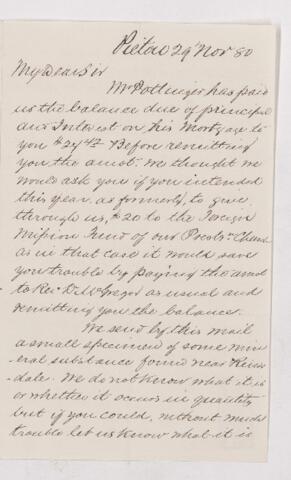 Pictou 29th Nov 80
My Dear Sir
Mr Pottinger has paid
us the balance due of principal
and Interest on his Mortgage to
you $24.42 Before remitting
you the amot. we thought we
would ask you if you intended
this year, as formerly, to give,
through us, $20 to the Foreign
Mission Fund of our Presbn. Church
as in that case it would save
you trouble by paying the amot
to Revd. Dr McGregor as usual and
remitting you the balance.
We send by this mail
a small specimen of some min
eral substance found near River
-dale. We do not know what it is
or whether it occurs in quantity
but if you could, without much
trouble let us know what it is